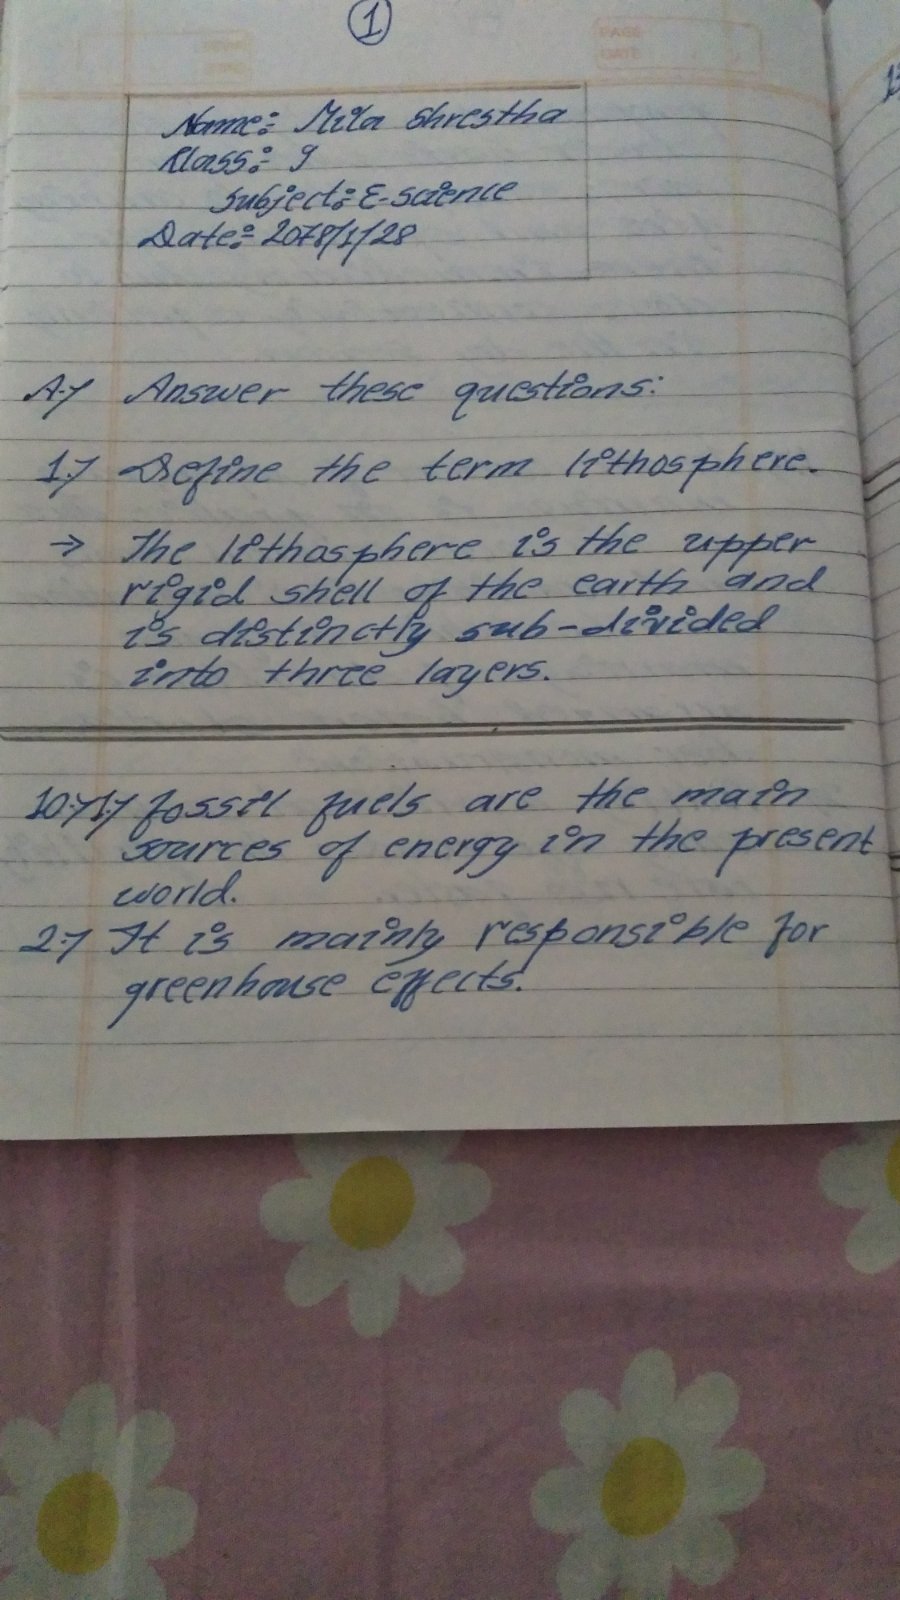 1
Name:- Mila Shrestha
Class:- 9
Subject:- E-science
Date:- 2078/1/28
A.) Answer these questions:
1.) Define the term lithosphere.
→ The lithosphere is the upper
rigid shell of the earth and
is distinctly sub-divided
into three layers.
10.)1.) fossil fuels are the main
sources of energy in the present
world.
2.) It is mainly responsible for
greenhouse effects.